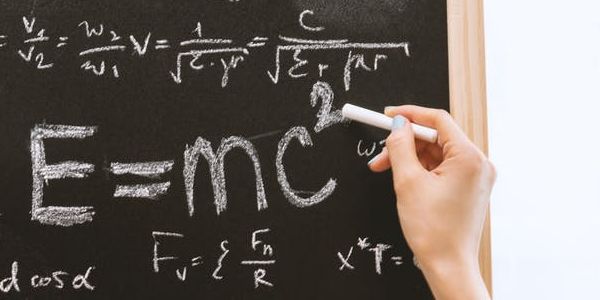 = V₁/V₂ = w₂/w₁ V = 1/√ε·γr = c/√εr μr
E=mc²
Fᵥ={ Fn/R x*T=
d cosα